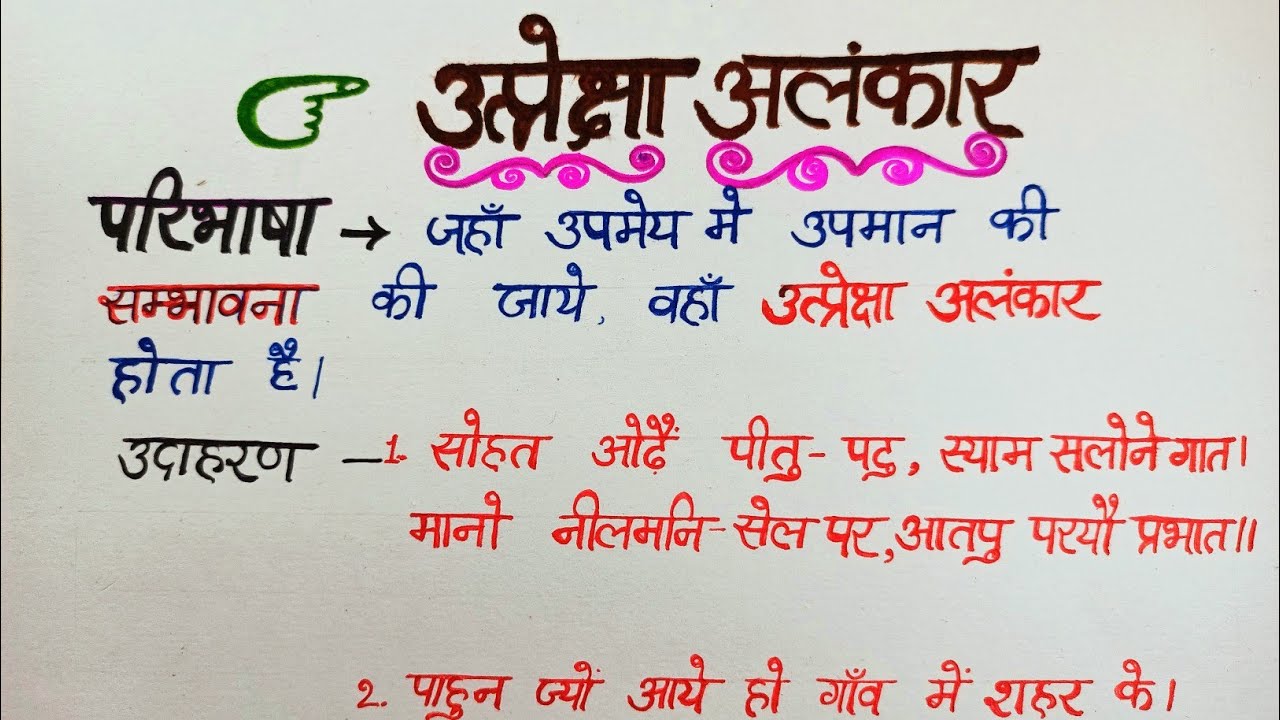 उत्प्रेक्षा अलंकार
परिभाषा → जहाँ उपमेय मे उपमान की
सम्भावना की जाये, वहाँ उत्प्रेक्षा अलंकार
होता है।
उदाहरण - 1. सोहत ओढ़ैं पीतु - पटु, स्याम सलोने गात।
मानो नीलमनि - सेल पर, आतपु परयौ प्रभात॥
2. पाहुन ज्यों आये हो गाँव में शहर के।